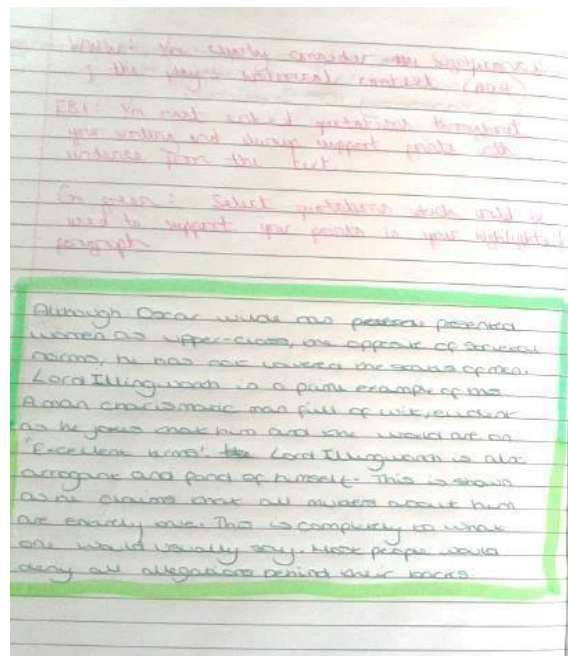 WWW: You clearly consider the significance
of the play's historical context (AO3)
EBI: You must embed quotations throughout
your writing and always support points with
evidence from the text
In green: Select quotations which could be
used to support your points in your highlighted
paragraph
Although Oscar Wilde has presented
women as upper-class, the opposite of societal
norms, he has not lowered the status of men.
Lord Illingworth is a prime example of this
A man charismatic man full of wit, evident
as he jokes that him and the world are on
'Excellent terms'. Lord Illingworth is also
arrogant and fond of himself. This is shown
as he claims that all about him
are exactly. This is completely to what
one would usually say. Most people would
deny all allegations behind their backs